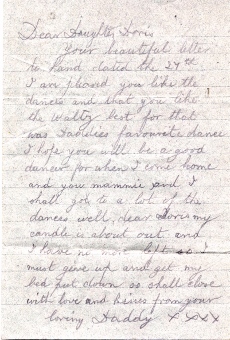 Dear Daughter Doris
Your beautiful letter
to hand dated the 24th
I am pleased you like the
dances and that you like
the waltz best for that
was Daddies favourite dance
I hope you will be a good
dancer for when I come home
and you mammie and I
shall go to a lot of the
dances well dear Doris my
candle is about out and
I have no more left so I
must give up and get my
bed put down so shall close
with love and kisses from your
loving Daddy X X X X